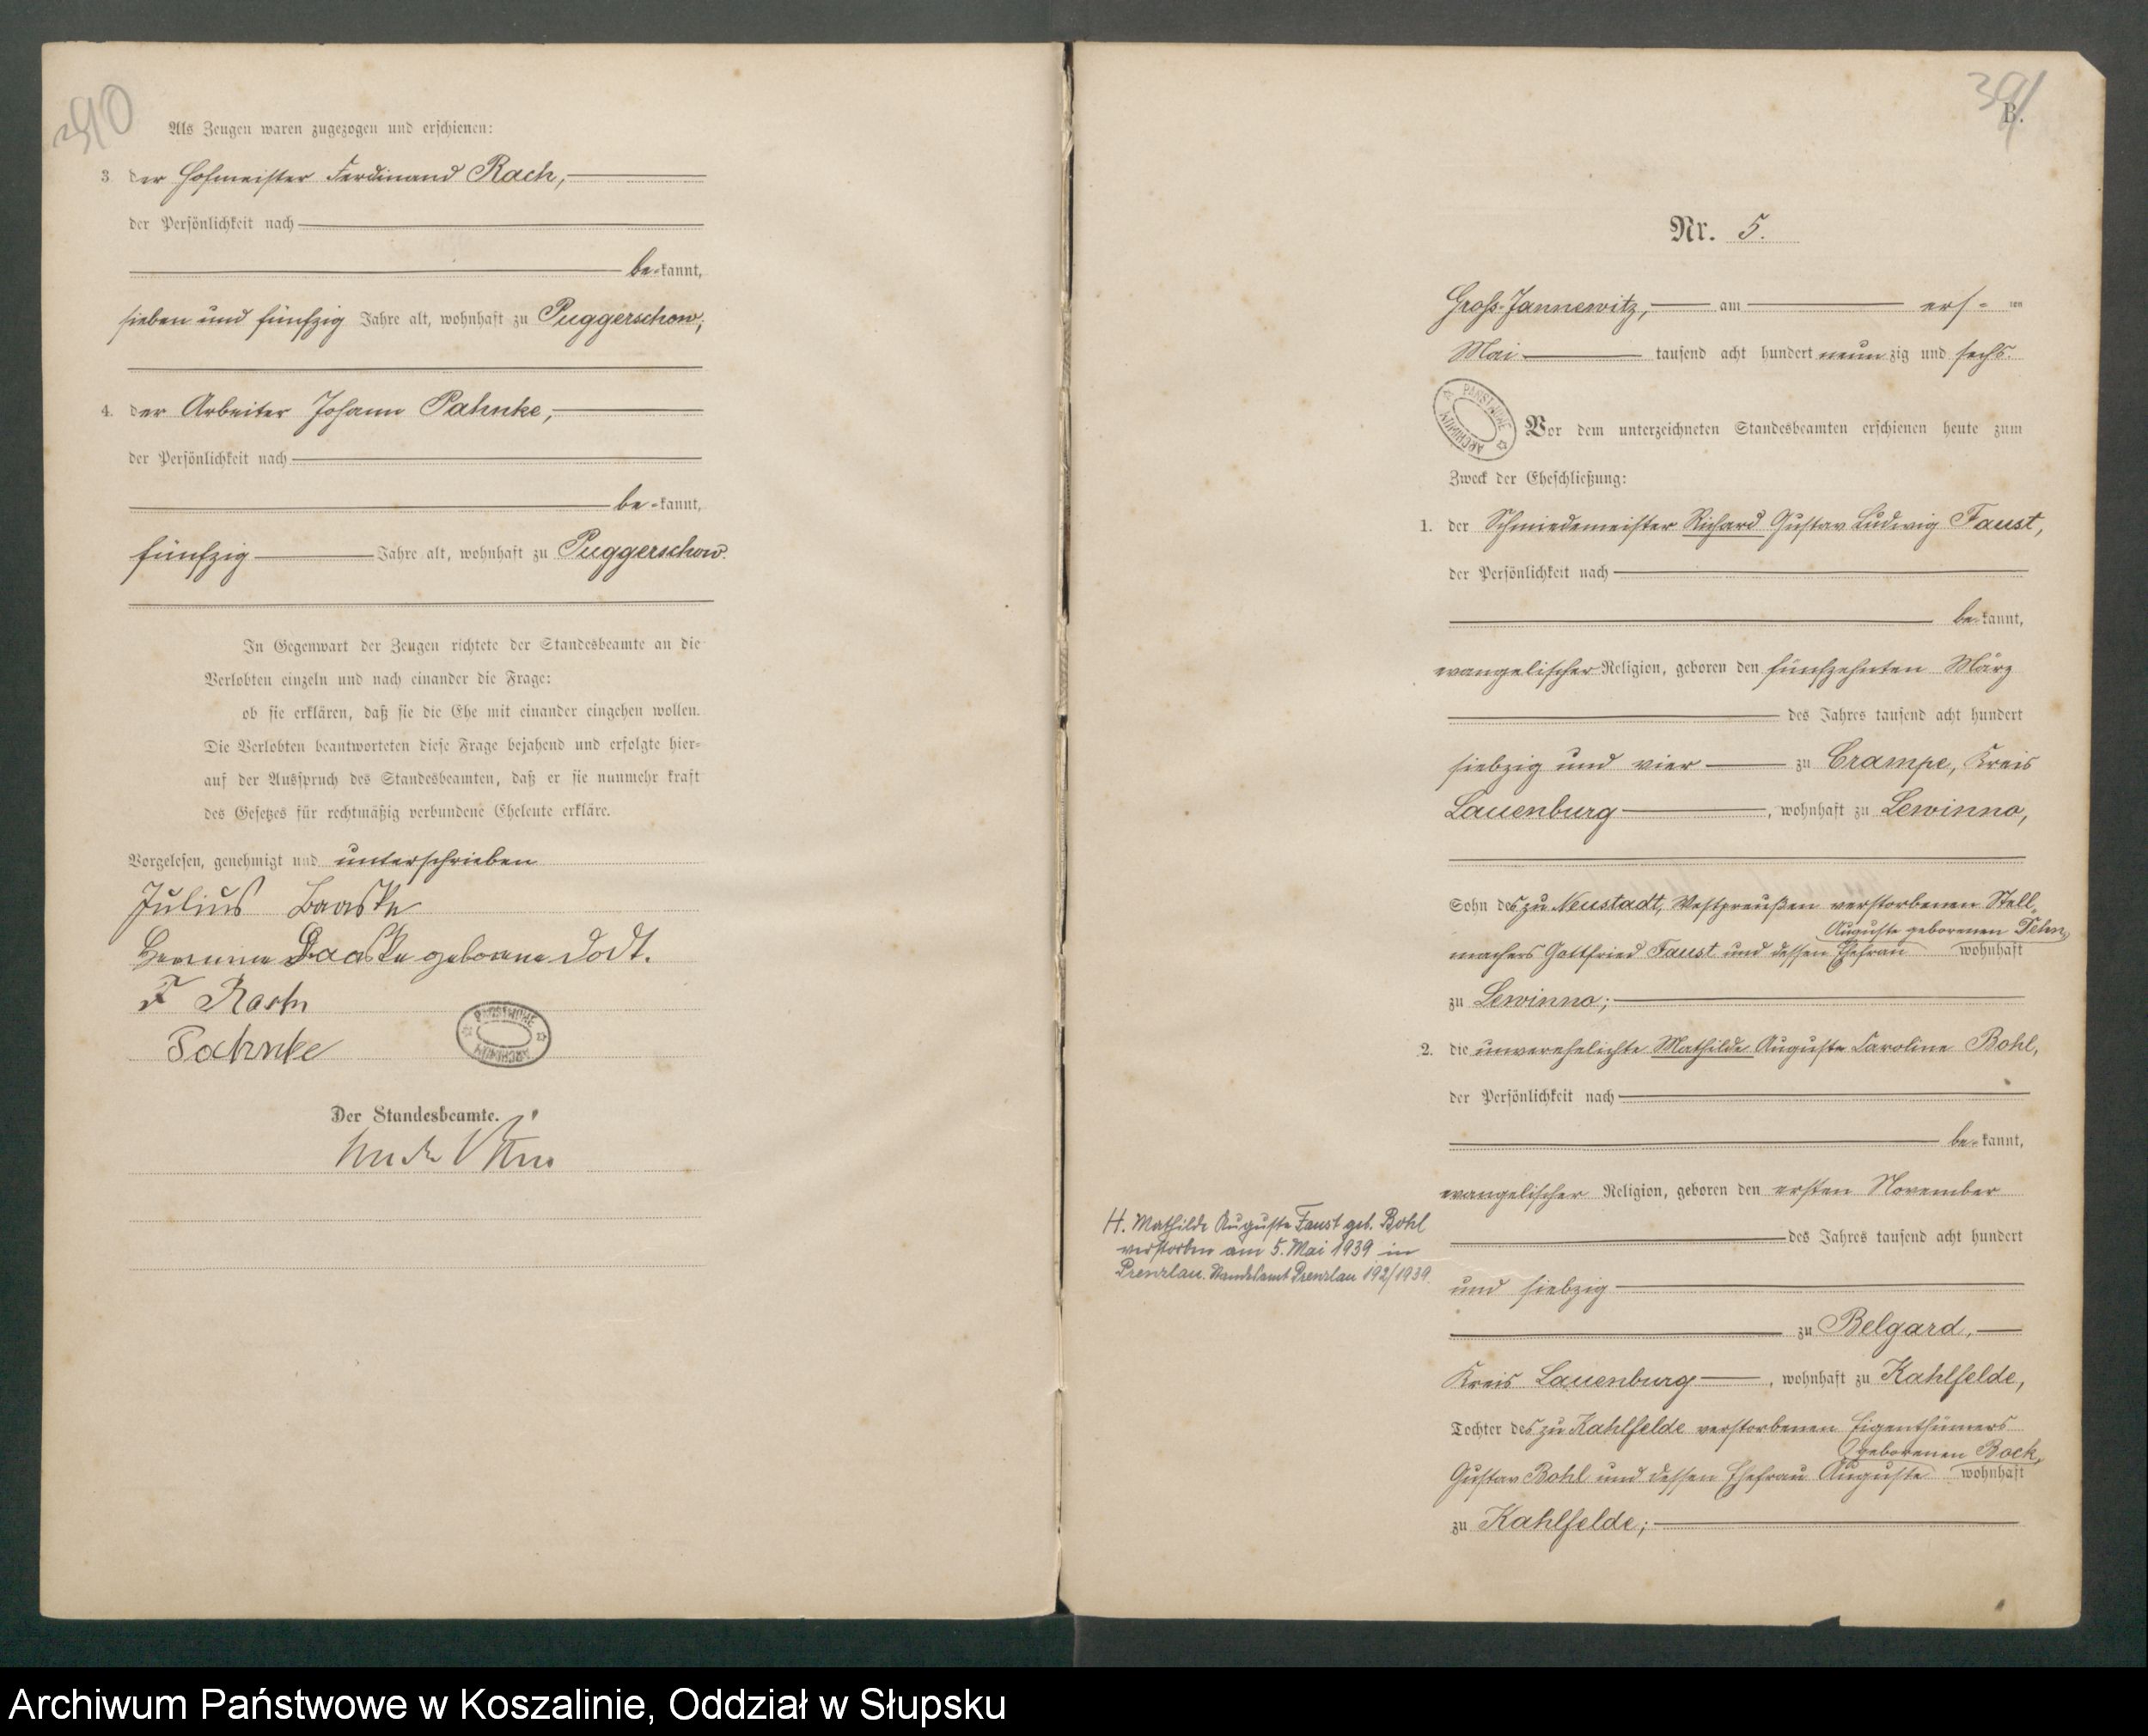 390
Als Zeugen waren zugezogen und erschienen:
3. der Hofmeister Ferdinand Rach,
der Persönlichkeit nach
be-kannt,
sieben und fünfzig Jahre alt, wohnhaft zu Puggerschow;
4. der Arbeiter Johann Pahnke,
der Persönlichkeit nach
be-kannt,
fünfzig Jahre alt, wohnhaft zu Puggerschow.
In Gegenwart der Zeugen richtete der Standesbeamte an die
Verlobten einzeln und nach einander die Frage:
ob sie erklären, daß sie die Ehe mit einander eingehen wollen.
Die Verlobten beantworteten diese Frage bejahend und erfolgte hier-
auf der Ausspruch des Standesbeamten, daß er sie nunmehr kraft
des Gesetzes für rechtmäßig verbundene Eheleute erkläre.
Vorgelesen, genehmigt und unterschrieben
Julius Baaske
Baaske geborene Dodt.
F Rach
Pahnke
PAŃSTWOWE ARCHIWUM
Der Standesbeamte.
391
B.
Nr. 5.
Groß-Jannewitz, am ers-ten
Mai tausend acht hundert neunzig und sechs.
PAŃSTWOWE ARCHIWUM
Vor dem unterzeichneten Standesbeamten erschienen heute zum
Zweck der Eheschließung:
1. der Schmiedemeister Richard Gustav Ludwig Faust,
der Persönlichkeit nach
be-kannt,
evangelischer Religion, geboren den fünfzehnten März
des Jahres tausend acht hundert
siebzig und vier zu Crampe, Kreis
Lauenburg, wohnhaft zu Lewinno,
Sohn des zu Neustadt, Westpreußen verstorbenen Stell-
Auguste geborenen
machers Gottfried Faust und dessen Ehefrau wohnhaft
zu Lewinno;
2. die unverehelichte Mathilde Auguste Caroline Bohl,
der Persönlichkeit nach
be-kannt,
evangelischer Religion, geboren den ersten November
des Jahres tausend acht hundert
und siebzig
zu Belgard,
Kreis Lauenburg, wohnhaft zu Kahlfelde,
Tochter des zu Kahlfelde verstorbenen Eigenthümers
geborenen Bock,
Gustav Bohl und dessen Ehefrau Auguste wohnhaft
zu Kahlfelde;
H. Mathilde Auguste Faust geb. Bohl
verstorben am 5. Mai 1939 in
Prenzlau. Standesamt Prenzlau 192/1939.
Archiwum Państwowe w Koszalinie, Oddział w Słupsku